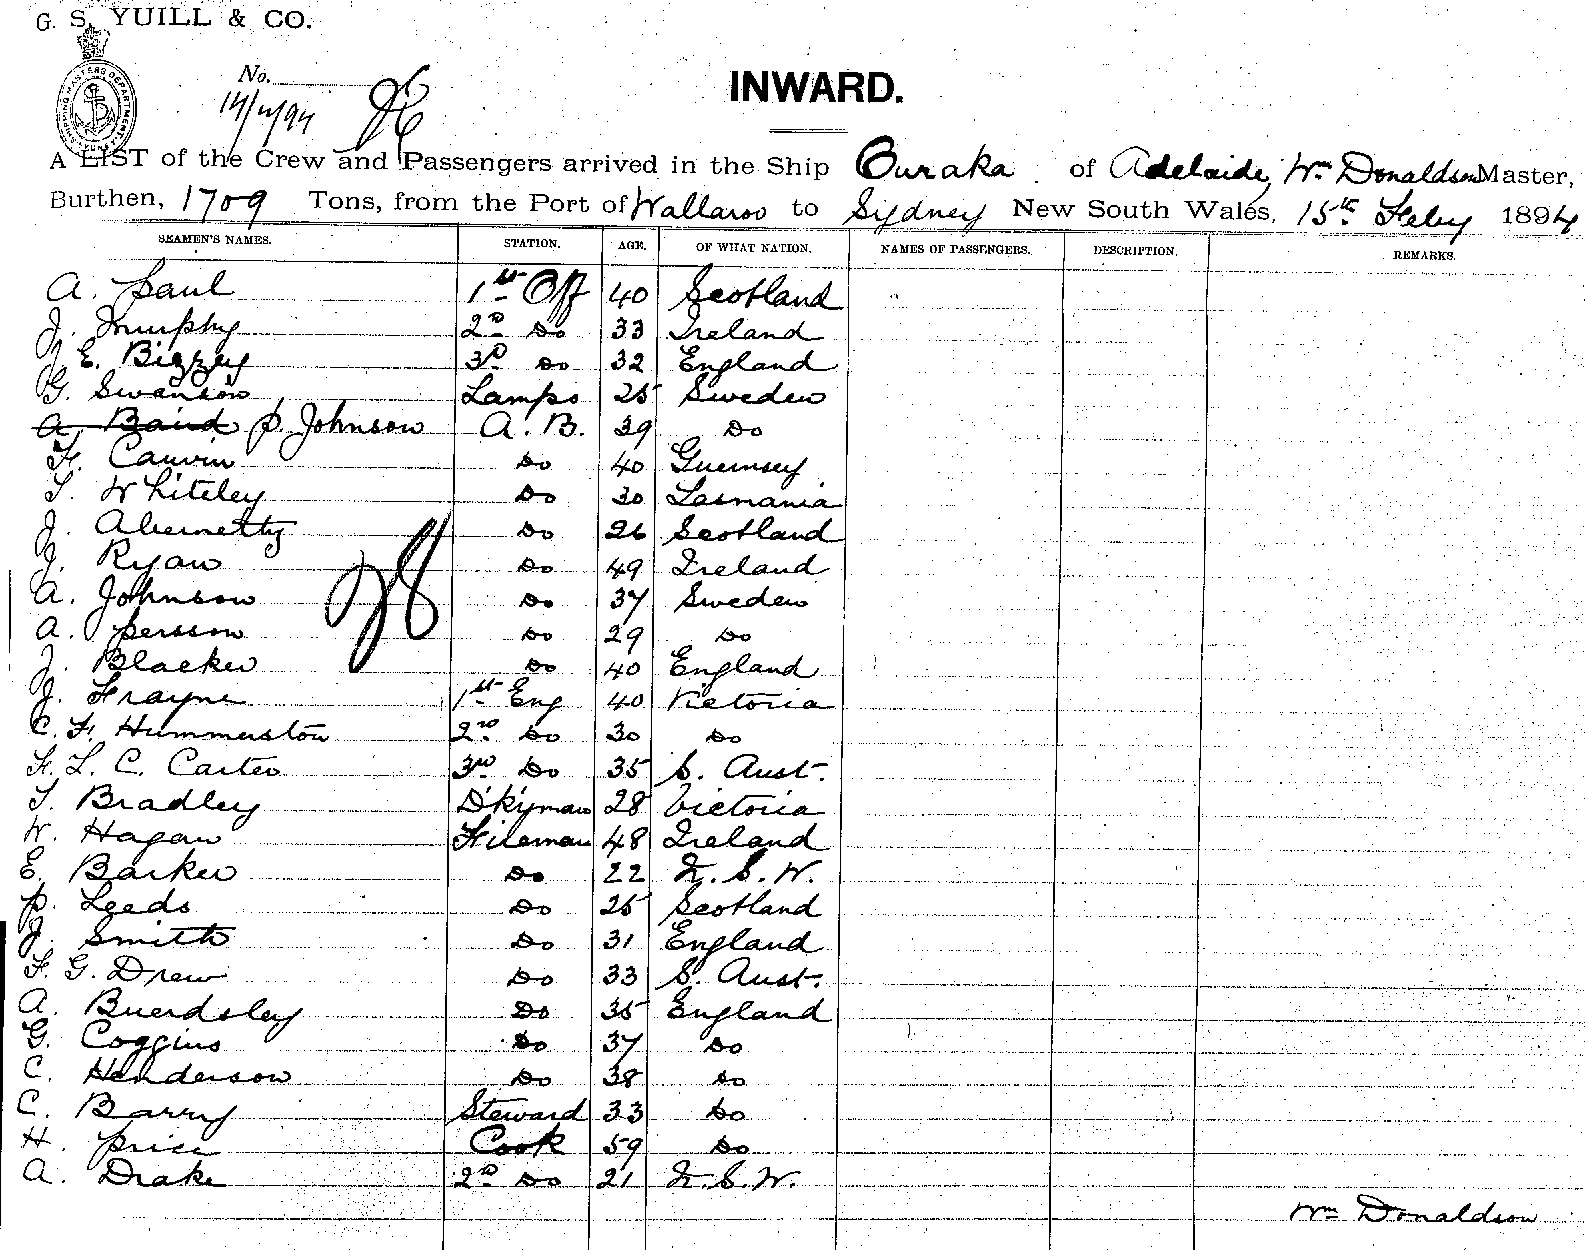 G. S. YUILL & CO.
No.
INWARD.
A LIST of the Crew and Passengers arrived in the Ship Ouraka of Adelaide, Wm Donaldson Master,
Burthen, 1709 Tons, from the Port of Wallaroo to Sydney New South Wales, 15th Feby 1894
SEAMEN'S NAMES. STATION. AGE. OF WHAT NATION. NAMES OF PASSENGERS. DESCRIPTION. REMARKS.
A. Paul 1st Off 40 Scotland
J. Murphy 2nd Do 33 Ireland
J. E. Bizzey 3rd Do 32 England
G. Swanson Lamps 25 Sweden
A. Baird P. Johnson A. B. 39 Do
F. Cauvin Do 40 Guernsey
T. Whiteley Do 30 Tasmania
J. Abernetty Do 26 Scotland
J. Ryan Do 49 Ireland
A. Johnson Do 37 Sweden
A. Persson Do 29 Do
J. Blacker Do 40 England
J. Frayne 1st Eng 40 Victoria
C. F. Hummerston 2nd Do 30 Do
F. L. C. Carter 3rd Do 35 S. Aust.
T. Bradley D'kyman 28 Victoria
W. Hagan Fireman 48 Ireland
E. Barker Do 22 N. S. W.
P. Leeds Do 25 Scotland
J. Smith Do 31 England
F. G. Drew Do 33 S. Aust.
A. Buerdsley Do 35 England
G. Coggins Do 37 Do
C. Henderson Do 38 Do
C. Barry Steward 33 Do
H. Price Cook 59 Do
A. Drake 2nd Do 21 N. S. W.
Wm Donaldson